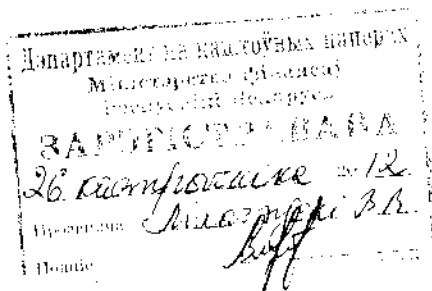 Дэпартамент па каштоўных паперах
Міністэрства фінансаў
Рэспублікі Беларусь
ЗАРЭГІСТРАВАНА
26 кастрычніка 2012
Прозвішча В.В.
Подпіс